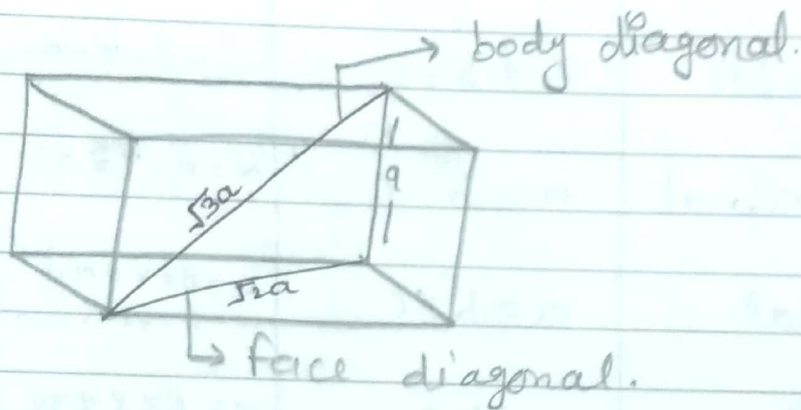 body diagonal.
√3a
a
√2a
face diagonal.